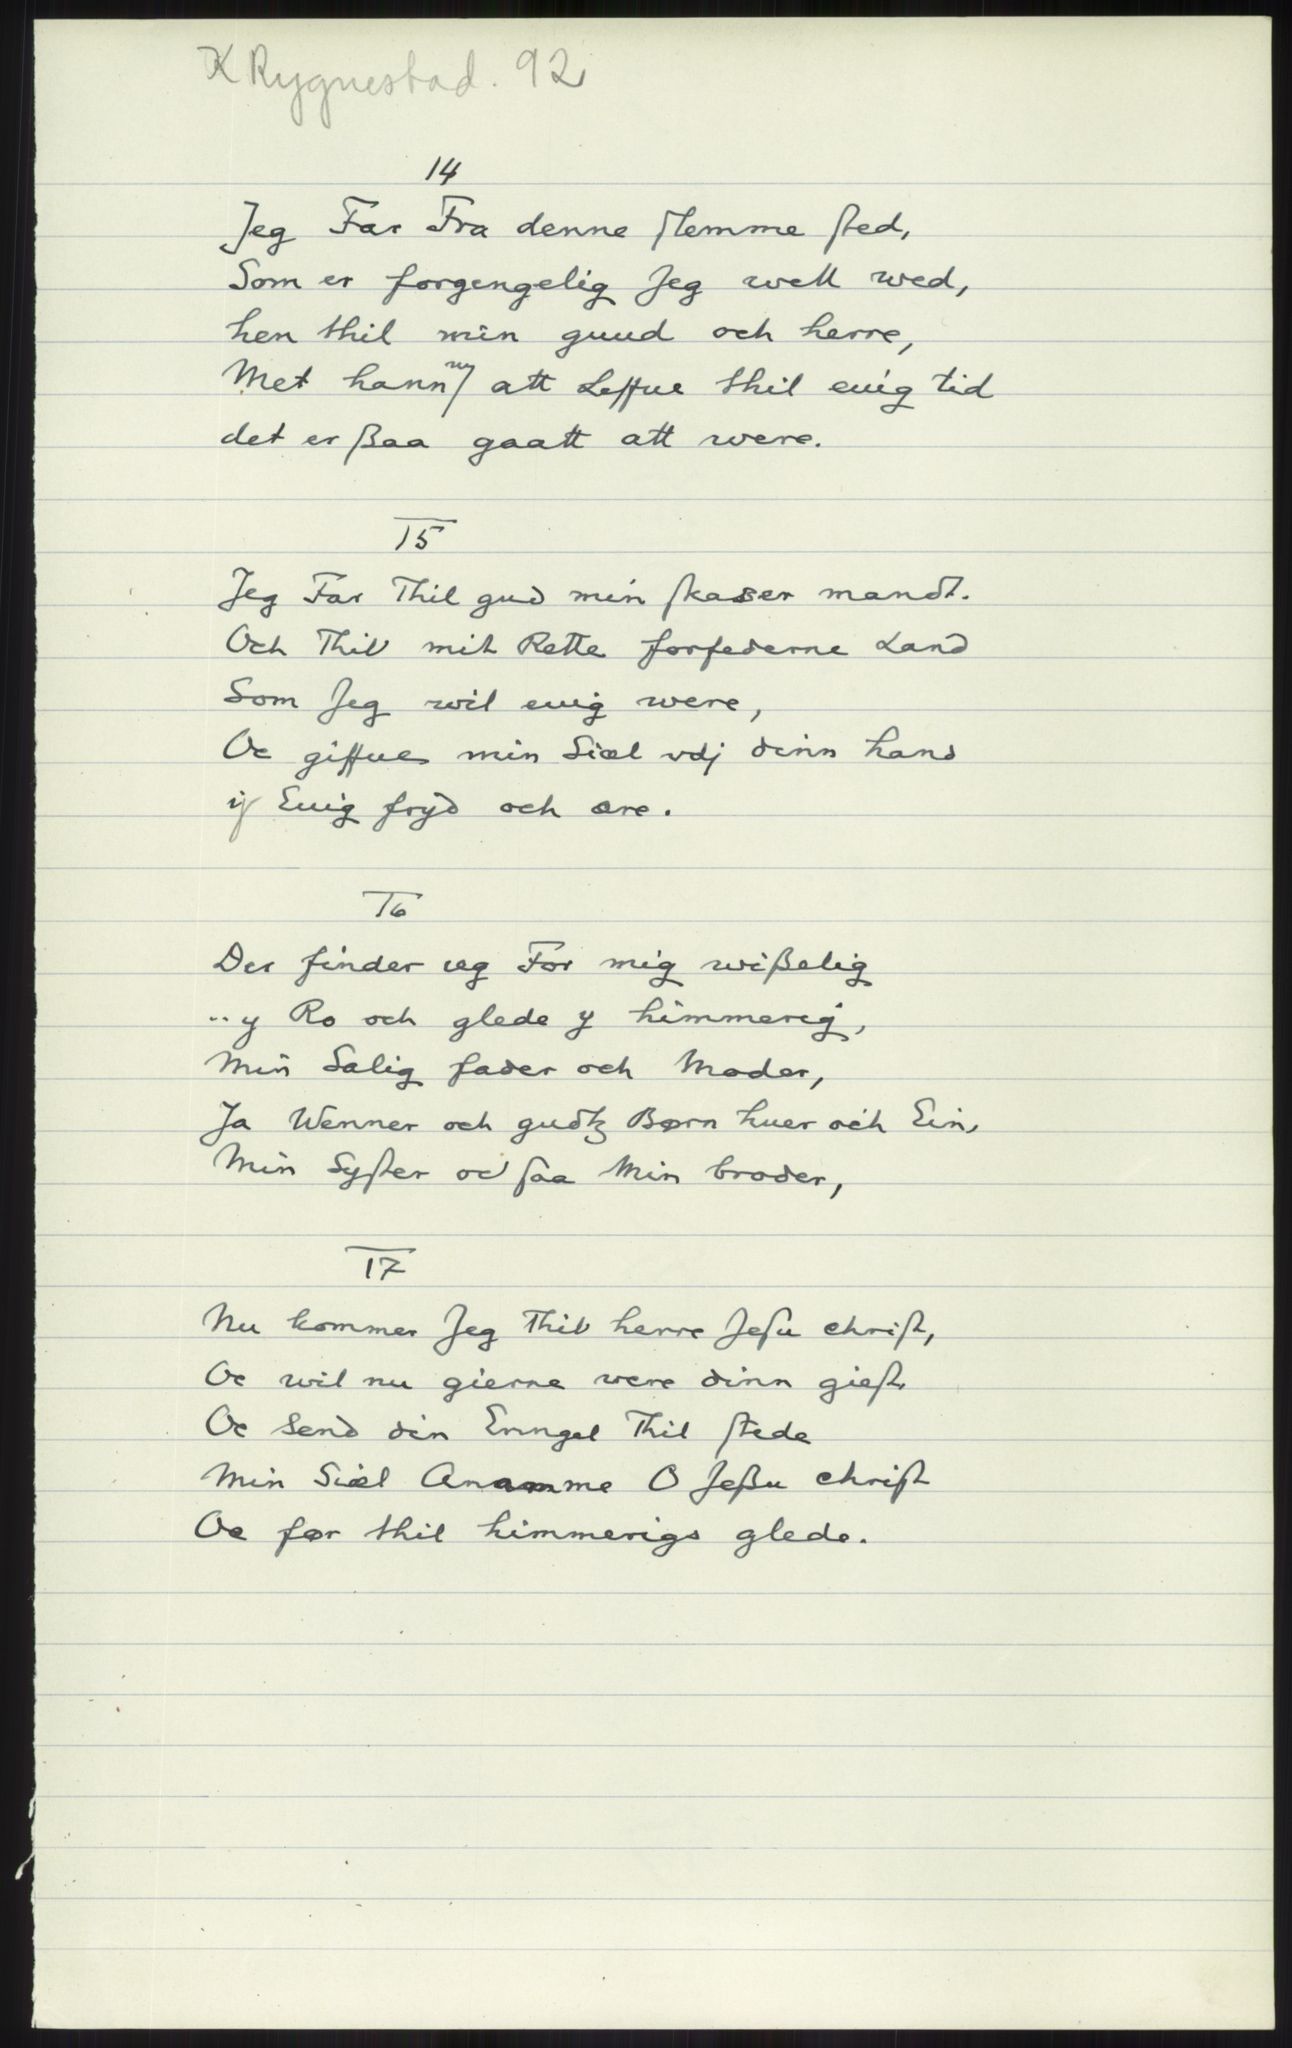 K Rygnestad. 92
14
Jeg Far Fra denne ſlemme ſted,
Som er forgengelig Jeg well wed,
hen thil min guud och herre,
Met hannm att Leffue thil euig tid
det er ſsaa gaatt att were.
15
Jeg Far Thil gud min ſkaser mandt.
Och Thil mit Rette forfederne Land
Som Jeg wil euig were,
Oc giffue min Siæl vdj dinn hand
ij Euig fryd och ære.
16
Der finder ieg For mig wißelig
..y Ro och glede y himmerig,
Min Salig fader och Moder,
Ja Wenner och gudtz Børn huer och Ein,
Min Syſter oc ſaa Min broder,
17
Nu kommer Jeg Thil herre Jeſu chriſt,
Oc wil nu gierne were dinn gieſt,
Oc Send din Enngel Thil ſtede
Min Siæl Anamme O Jeßu chriſt
Oc før thil himmerigs glede.